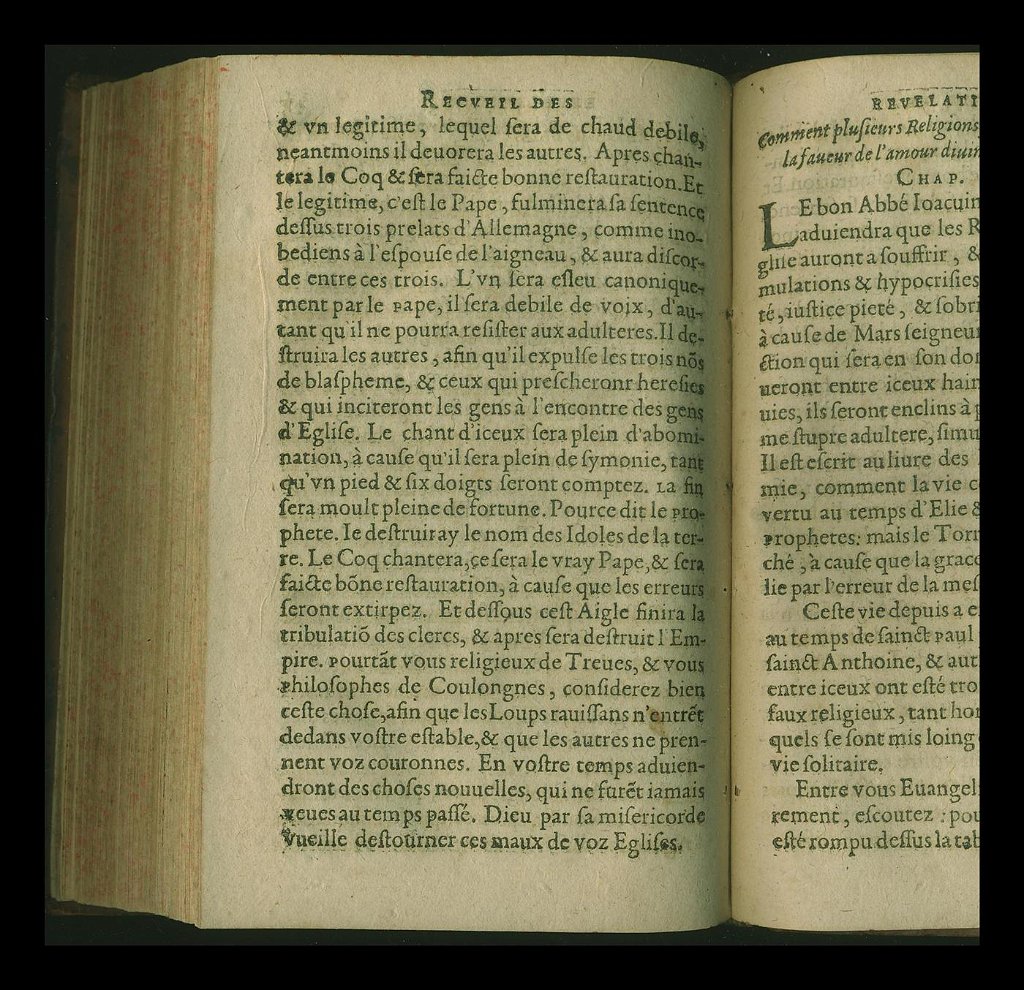 RECVEIL DES
& vn legitime, lequel ſera de chaud debile,
neantmoins il deuorera les autres. Apres chan-
tera le Coq & ſera faicte bonne reſtauration. Et
le legitime, c'eſt le Pape, fulminera ſa ſentence
deſſus trois prelats d'Allemagne, comme ino-
bediens à l'eſpouſe de l'aigneau, & aura diſcor-
de entre ces trois. L'vn ſera eſleu canonique-
ment par le Pape, il ſera debile de voix, d'au-
tant qu'il ne pourra reſiſter aux adulteres. Il de-
ſtruira les autres, afin qu'il expulſe les trois nõs
de blaſpheme, & ceux qui preſcheronr hereſies
& qui inciteront les gens à l'encontre des gens
d'Egliſe. Le chant d'iceux ſera plein d'abomi-
nation, à cauſe qu'il ſera plein de ſymonie, tant
qu'vn pied & ſix doigts ſeront comptez. La fin
ſera moult pleine de fortune. Pource dit le Pro-
phete. Ie deſtruiray le nom des Idoles de la ter-
re. Le Coq chantera, ce ſera le vray Pape, & ſera
faicte bõne reſtauration, à cauſe que les erreurs
ſeront extirpez. Et deſſous ceſt Aigle finira la
tribulatiõ des clercs, & apres ſera deſtruit l'Em-
pire. Pourtãt vous religieux de Treues, & vous
Philoſophes de Coulongnes, conſiderez bien
ceſte choſe, afin que les Loups rauiſſans n'entrẽt
dedans voſtre eſtable, & que les autres ne pren-
nent voz couronnes. En voſtre temps aduien-
dront des choſes nouuelles, qui ne furẽt iamais
veues au temps paſſé. Dieu par ſa miſericorde
vueille deſtourner ces maux de voz Egliſes.
REVELATI
Comment pluſieurs Religions
la faueur de l'amour diuin
CHAP.
LE bon Abbé Ioacuin
aduiendra que les R
gliſe auront a ſouffrir, &
mulations & hypocriſies
té, iuſtice pieté, & ſobri
à cauſe de Mars ſeigneur
ction qui ſera en ſon do
ueront entre iceux hain
uies, ils ſeront enclins à p
me ſtupre adultere, ſimu
Il eſt eſcrit au liure des
mie, comment la vie c
vertu au temps d'Elie &
Prophetes: mais le Torr
ché, à cauſe que la grace
lie par l'erreur de la meſ
Ceſte vie depuis a e
au temps de ſainct Paul
ſainct Anthoine, & aut
entre iceux ont eſté tro
faux religieux, tant hor
quels ſe ſont mis loing
vie ſolitaire.
Entre vous Euangel
rement, eſcoutez: pou
eſté rompu deſſus la tab